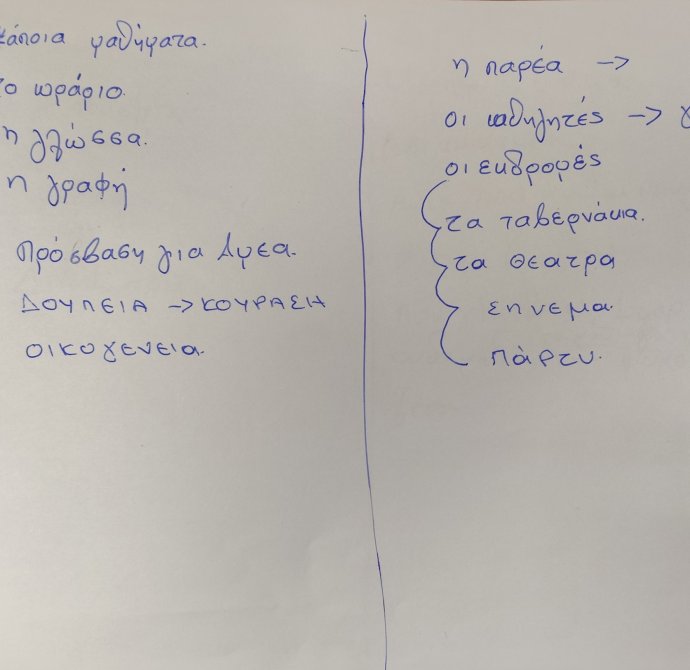 κάποια μαθήματα.
το ωράριο
η γλώσσα.
η γραφή
πρόσβαση για Αμεα.
ΔΟΥΛΕΙΑ -> ΚΟΥΡΑΣΗ
ΟΙΚΟΓΕΝΕΙΑ.
η παρέα ->
οι καθηγητές ->
οι εκδρομές
τα ταβερνάκια.
τα θεατρα
σηνεμα.
πάρτυ.